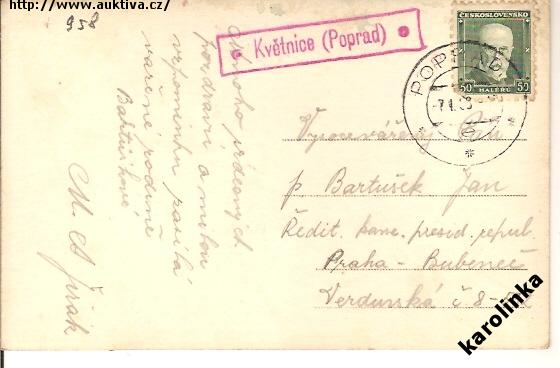 http://www.auktiva.cz/
958
Květnice (Poprad)
ČESKOSLOVENSKO
50 HALÉŘŮ 50
POPRAD
Mnoho srdečných
pozdravů a milou
vzpomínku zasílá
vážené rodině
Bartuškové
M. A. Jirák
Vysocevážený Pan
p Bartušek Jan
Ředit. kanc. presid. republ.
Praha - Bubeneč
Verdunská č 8
karolinka